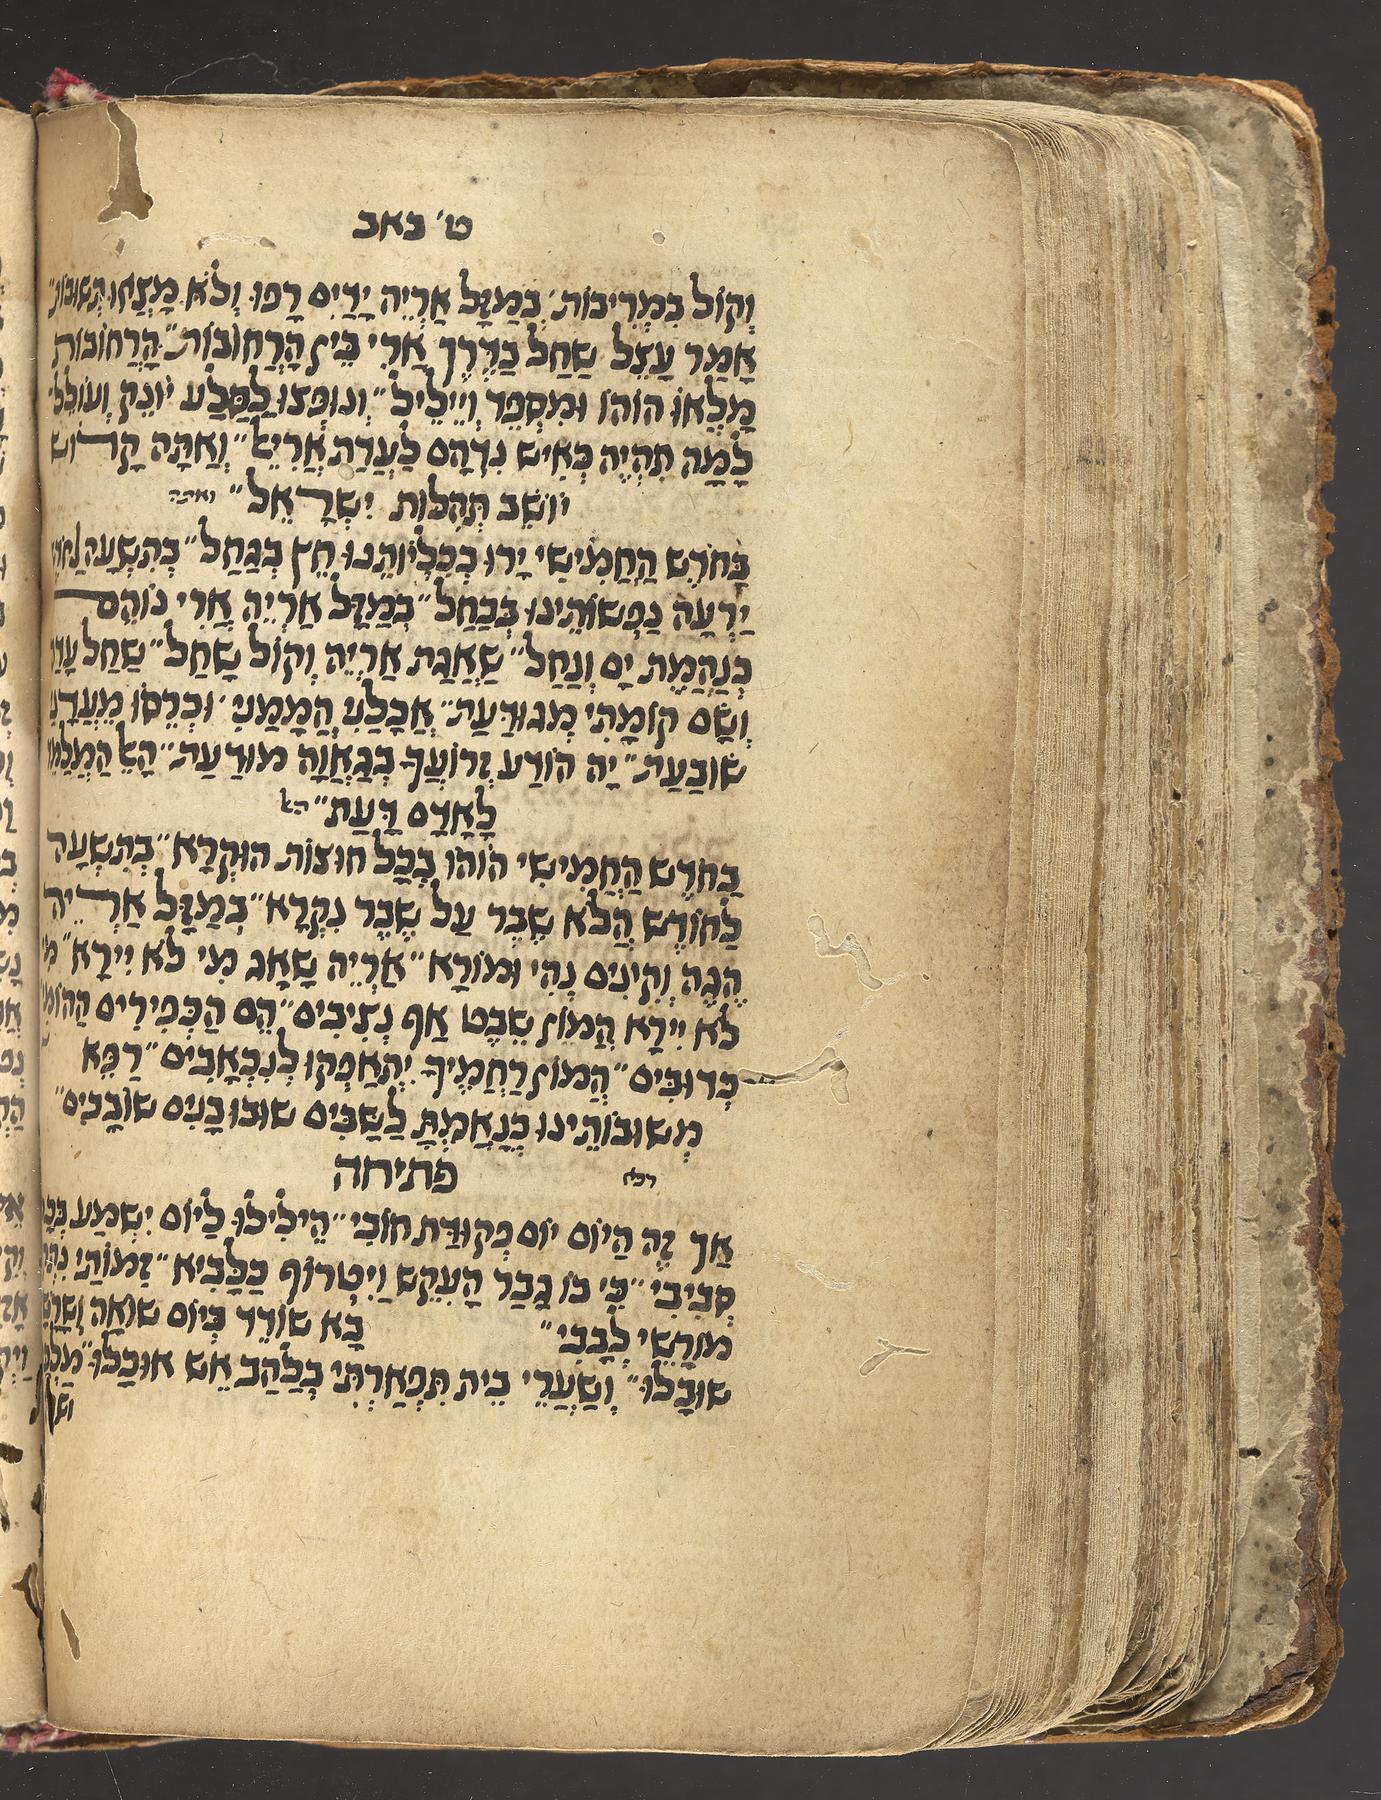 ט׳ באב
וְקוֹל בִּמְרִיבוֹת׳ בְּמַזָּל אַרְיֵה יָדַיִם רָפוּ וְלֹא מָצְאוּ תְשׁוּבוֹת״
אָמַר עָצֵל שַׁחַל בַּדֶּרֶךְ אֲרִי בֵּין הָרְחוֹבוֹת״ הָרְחוֹבוֹת
מָלְאוּ הוֹהוֹ וּמִסְפֵּד וְיֵילֵיל״ וְנוּפְּצוּ לַסֶּלַע יוֹנֵק וְעוֹלֵל׳
לָמָּה תִהְיֶה כְּאִישׁ נִדְהָם לַעֲדַת אֲרִיאֵל״ וְאַתָּה קָדוֹשׁ
יוֹשֵׁב תְּהִלּוֹת יִשְׂרָאֵל״ ואתה
בַּחֹדֶשׁ הַחֲמִישִׁי יָרוּ בְּכִלְיוֹתֵנוּ חֵץ בְּגַחַל״ בְּתִשְׁעָה
יַרְעָה נַפְשׁוֹתֵינוּ בְּבַחַל״ בְּמַזָּל אַרְיֵה אֲרִי נוֹהֵם
כְּנַהֲמַת יָם וְנַחַל״ שַׁאֲגַת אַרְיֵה וְקוֹל שָׁחַל״ שַׁחַל
וְשָׂם קוֹמָתִי מְגוּדַּעַת״ אֲכָלַנִי הֲמָמַנִי׳ וּכְרֵסוֹ מֵעֲדָנַי
שׂוֹבַעַת״ יָהּ הוֹדַע זְרוֹעֲךָ בְּגַאֲוָה מוּדַעַת״ הָאֵל הַמְלַמֵּד
לָאָדָם דָּעַת״ האל
בַּחֹדֶשׁ הַחֲמִישִׁי הוֹהוֹ בְּכָל חוּצוֹת הוּקְרָא״ בְּתִשְׁעָה
לַחוֹדֶשׁ הֲלֹא שֶׁבֶר עַל שֶׁבֶר נִקְרָא״ בְּמַזָּל אַרְיֵה
הֶגֶה וְקִינִים נְהִי וּמוֹרָא״ אַרְיֵה שָׁאָג מִי לֹא יִירָא״ מִי
לֹא יִירָא הֲמוֹן שֵׁבֶט אַף נְצִיבִים״ הֵם הַכְּפִירִים
כְּדוּבִּים״ הֲמוֹן רַחֲמֶיךָ יִתְאַפְּקוּ לְנִכְאָבִים״ רַפֵּא
מְשׁוּבוֹתֵינוּ כְּנָאַמְתָּ לַשָּׁבִים שׁוּבוּ בָּנִים שׁוֹבָבִים״
פתיחה
אַךְ זֶה הַיּוֹם יוֹם פְּקוּדַּת חוֹבִי״ הֵילִילוּ לַיּוֹם יִשְׁמַע
סְבִיבִי״ כִּי בוֹ גָבַר הָעִקֵּשׁ וַיִּטְרוֹף כַּלָּבִיא״ זַמּוֹתַי
מוֹרָשֵׁי לְבָבִי״ בָּא שׁוֹדֵד בְּיוֹם שׁוֹאָה
שׁוּבָּלוּ״ וְשַׁעֲרֵי בֵּית תִּפְאַרְתִּי כְּלַהַב אֵשׁ אוּכָּלוּ״